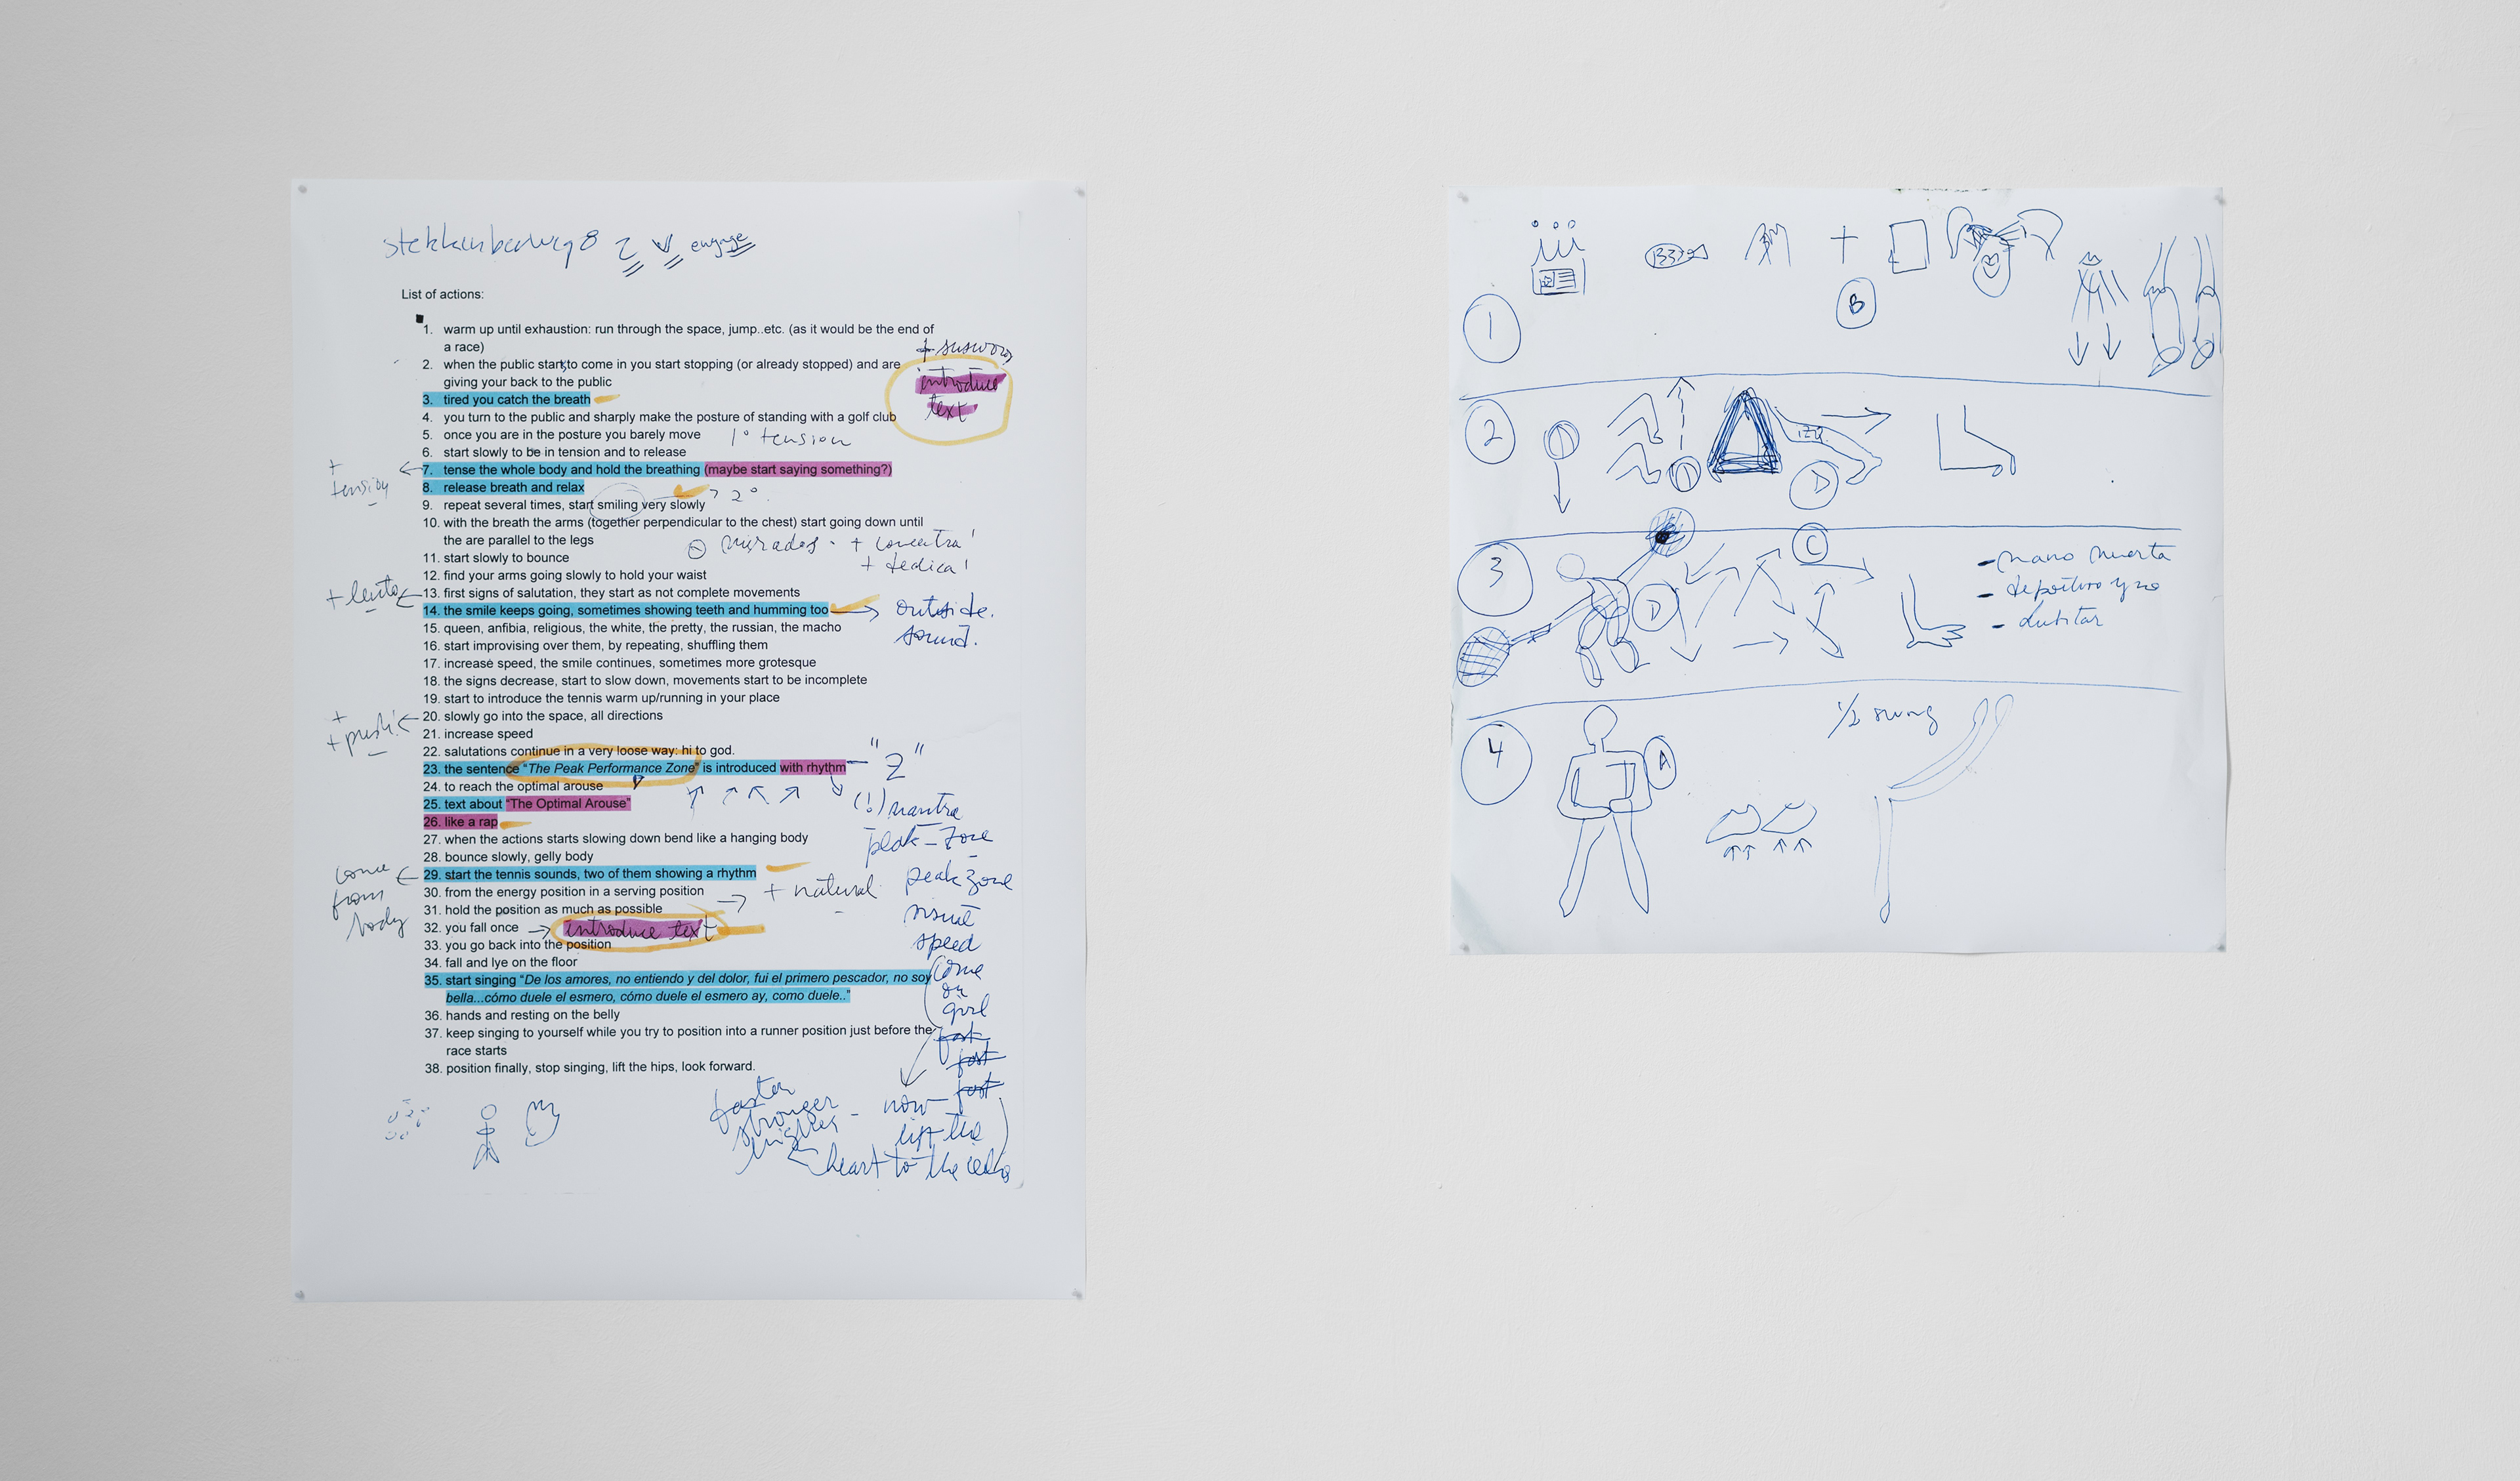 engage
List of actions:
1. warm up until exhaustion: run through the space, jump..etc. (as it would be the end of
a race)
2. when the public start to come in you start stopping (or already stopped) and are
giving your back to the public
introduce
text
3. tired you catch the breath
4. you turn to the public and sharply make the posture of standing with a golf club
5. once you are in the posture you barely move 1° tension
6. start slowly to be in tension and to release
+
7. tense the whole body and hold the breathing (maybe start saying something?)
8. release breath and relax
9. repeat several times, start smiling very slowly 2°.
10. with the breath the arms (together perpendicular to the chest) start going down until
the are parallel to the legs
11. start slowly to bounce
12. find your arms going slowly to hold your waist
+ lento
13. first signs of salutation, they start as not complete movements
14. the smile keeps going, sometimes showing teeth and humming too
outside.
sound.
15. queen, anfibia, religious, the white, the pretty, the russian, the macho
16. start improvising over them, by repeating, shuffling them
17. increase speed, the smile continues, sometimes more grotesque
18. the signs decrease, start to slow down, movements start to be incomplete
19. start to introduce the tennis warm up/running in your place
20. slowly go into the space, all directions
21. increase speed
22. salutations continue in a very loose way: hi to god.
23. the sentence “The Peak Performance Zone” is introduced with rhythm
"Z"
24. to reach the optimal arouse
25. text about “The Optimal Arouse”
26. like a rap
(!) mantra
peak-zone
27. when the actions starts slowing down bend like a hanging body
28. bounce slowly, gelly body
come
from
body
29. start the tennis sounds, two of them showing a rhythm
30. from the energy position in a serving position
+ natural
31. hold the position as much as possible
32. you fall once introduce text
33. you go back into the position
34. fall and lye on the floor
35. start singing “De los amores, no entiendo y del dolor, fui el primero pescador, no soy
bella...cómo duele el esmero, cómo duele el esmero ay, como duele..”
36. hands and resting on the belly
37. keep singing to yourself while you try to position into a runner position just before the
race starts
38. position finally, stop singing, lift the hips, look forward.
peak zone
speed
come
on
girl
fast
fast
fast
faster
stronger
higher
now
lift the
heart to the
1
B
2
D
3
C
D
- mano muerta
- deportivo y no
- dubitar
4
A
1/2 swing